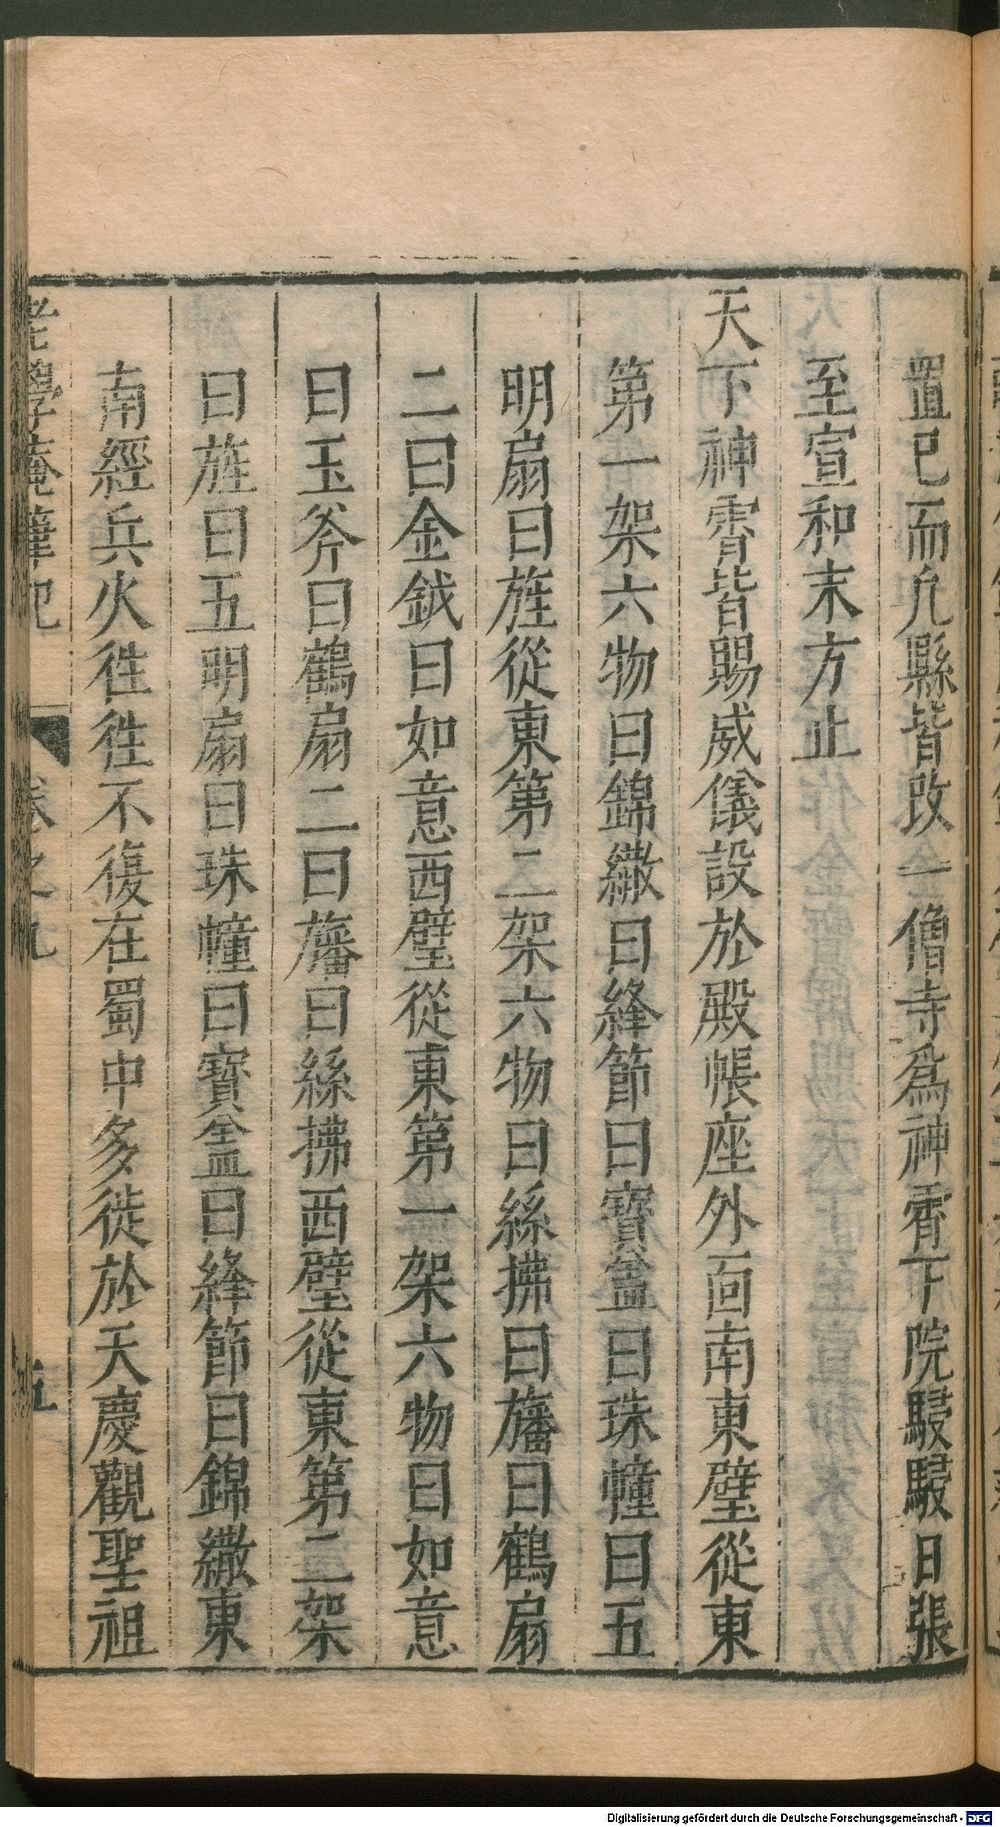 置已而凢縣皆改一僧寺爲神霄下院駸駸日張
至宣和末方止
天下神霄皆賜威儀設於殿帳座外面南東壁從東
第一架六物曰錦繖曰絳節曰寳盖曰珠幢曰五
明扇曰旌從東第二架六物曰絲拂曰旛曰鶴扇
二曰金鉞曰如意西壁從東第一架六物曰如意
曰玉斧曰鶴扇二曰旛曰絲拂西壁從東第二架
曰旌曰五明扇曰珠幢曰寳盖曰絳節曰錦繖東
南經兵火徃徃不復在蜀中多徙於天慶觀聖祖
老學庵筆記 卷之九 五
Digitalisierung gefördert durch die Deutsche Forschungsgemeinschaft - DFG